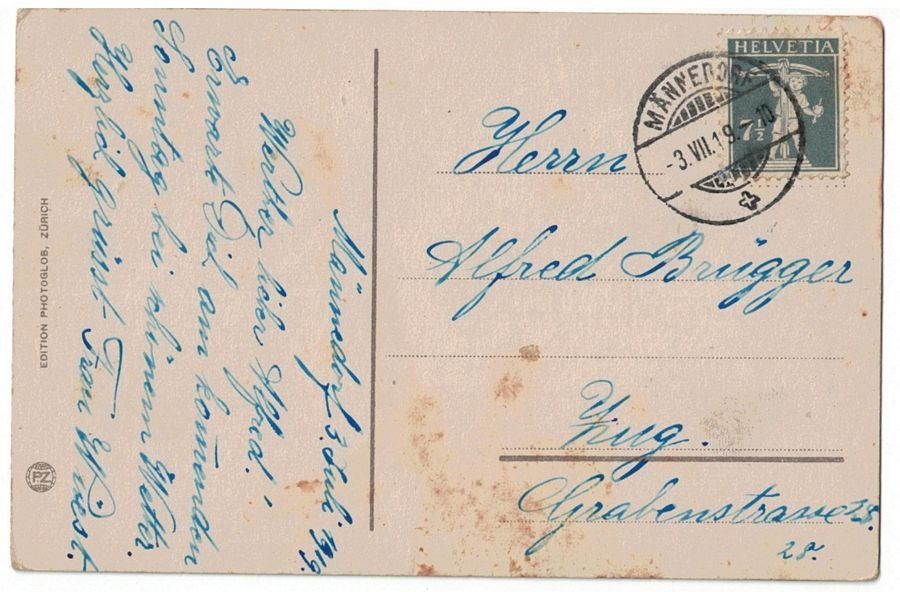 Männedorf, 3. Juli. 1919.
Werter lieber Alfred!
Erwart Dich am kommenden
Sonntag bei schönem Wetter.
Herzlich grüsst Frau Wüest.
EDITION PHOTOGLOB, ZÜRICH
PZ
HELVETIA
7½
MÄNNEDORF
-3.VII.19.-7.10
Herrn
Alfred Brügger
Zug.
28.